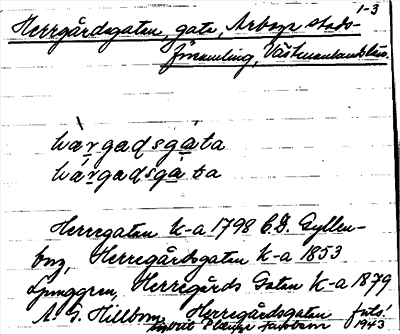 1-3
Herrgårdsgatan, gata, Arboga stads-
församling, Västmanlands län.
hærgadsgáta
hárgadsgàta
Herregatan k-a 1798 C.D. Gyllen-
borg, Herregårdsgatan k-a 1853
Ljunggren, Herregårds Gatan k-a 1879
A. G. Hillbom, Herregårdsgatan
1943